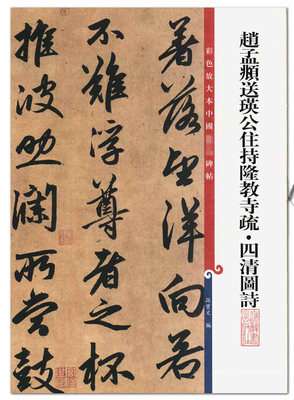 趙孟頫送瑛公住持隆教寺疏·四清圖詩
彩色放大本中國
碑帖
孫寶文 編
著落望洋向若
不難浮尊者之杯
推波助瀾所鼓